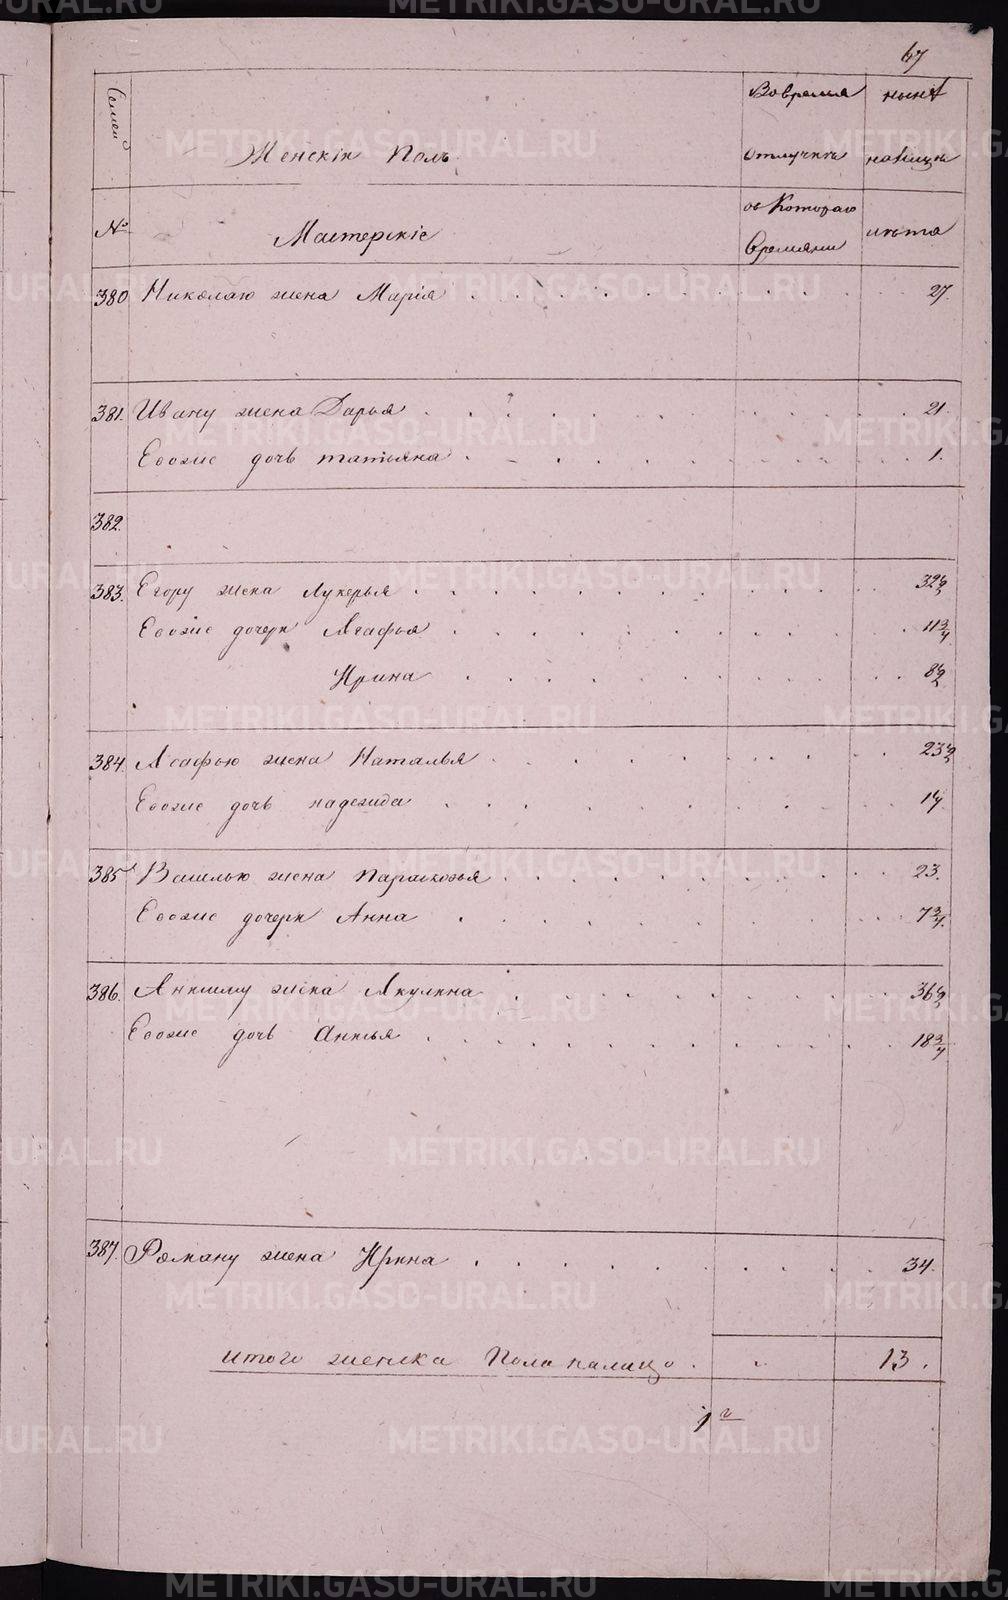 67
Семей
Женскiй Полъ
Вовремен.
отлучкѣ
нынѣ
налицо
№
Мастерскiе
съ Котораго
Времяни
лѣта
380 Николаю жена Марiя 27.
381. Ивану жена Дарья 21.
Ево же дочь татьяна 1.
382.
383. Егору жена Лукерья 32 1/2
Ево же дочери Агафья 11 3/4
Ирина 8 1/2
384. Асафью жена Наталья 23 1/2
Ево же дочь надежда
385 Василью жена Парасковья 23.
Ево же дочери Анна 7 3/4.
386. жена Акулина 36 1/2
Ево же дочь 18 3/4
387. Роману жена Ирина 34.
итого женска Пола налицо. 13.
METRIKI.GASO-URAL.RU